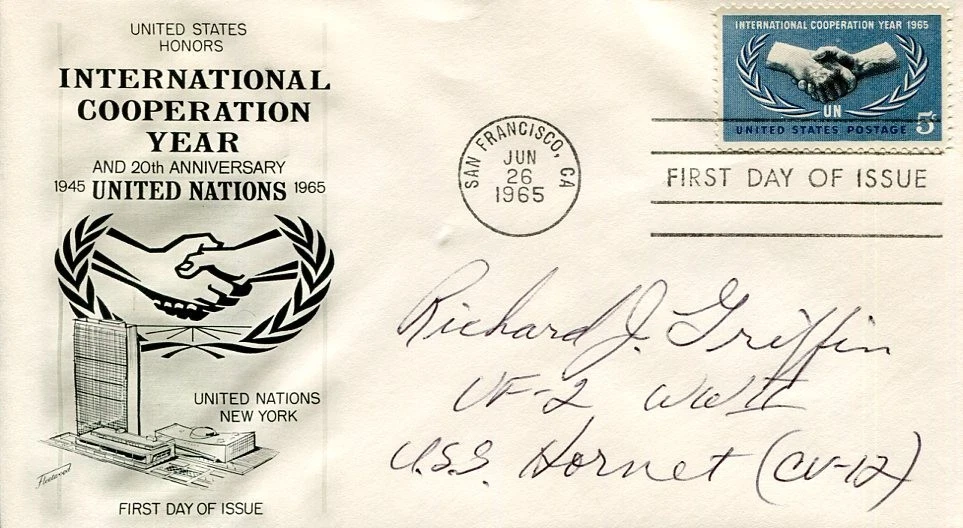 UNITED STATES
HONORS
INTERNATIONAL
COOPERATION
YEAR
AND 20th ANNIVERSARY
1945 UNITED NATIONS 1965
UNITED NATIONS
NEW YORK
Fleetwood
FIRST DAY OF ISSUE
INTERNATIONAL COOPERATION YEAR 1965
UN
UNITED STATES POSTAGE 5¢
SAN FRANCISCO, CA
JUN
26
1965
FIRST DAY OF ISSUE
Richard J. Griffin
VF-2 WWII
U.S.S. Hornet (CV-12)